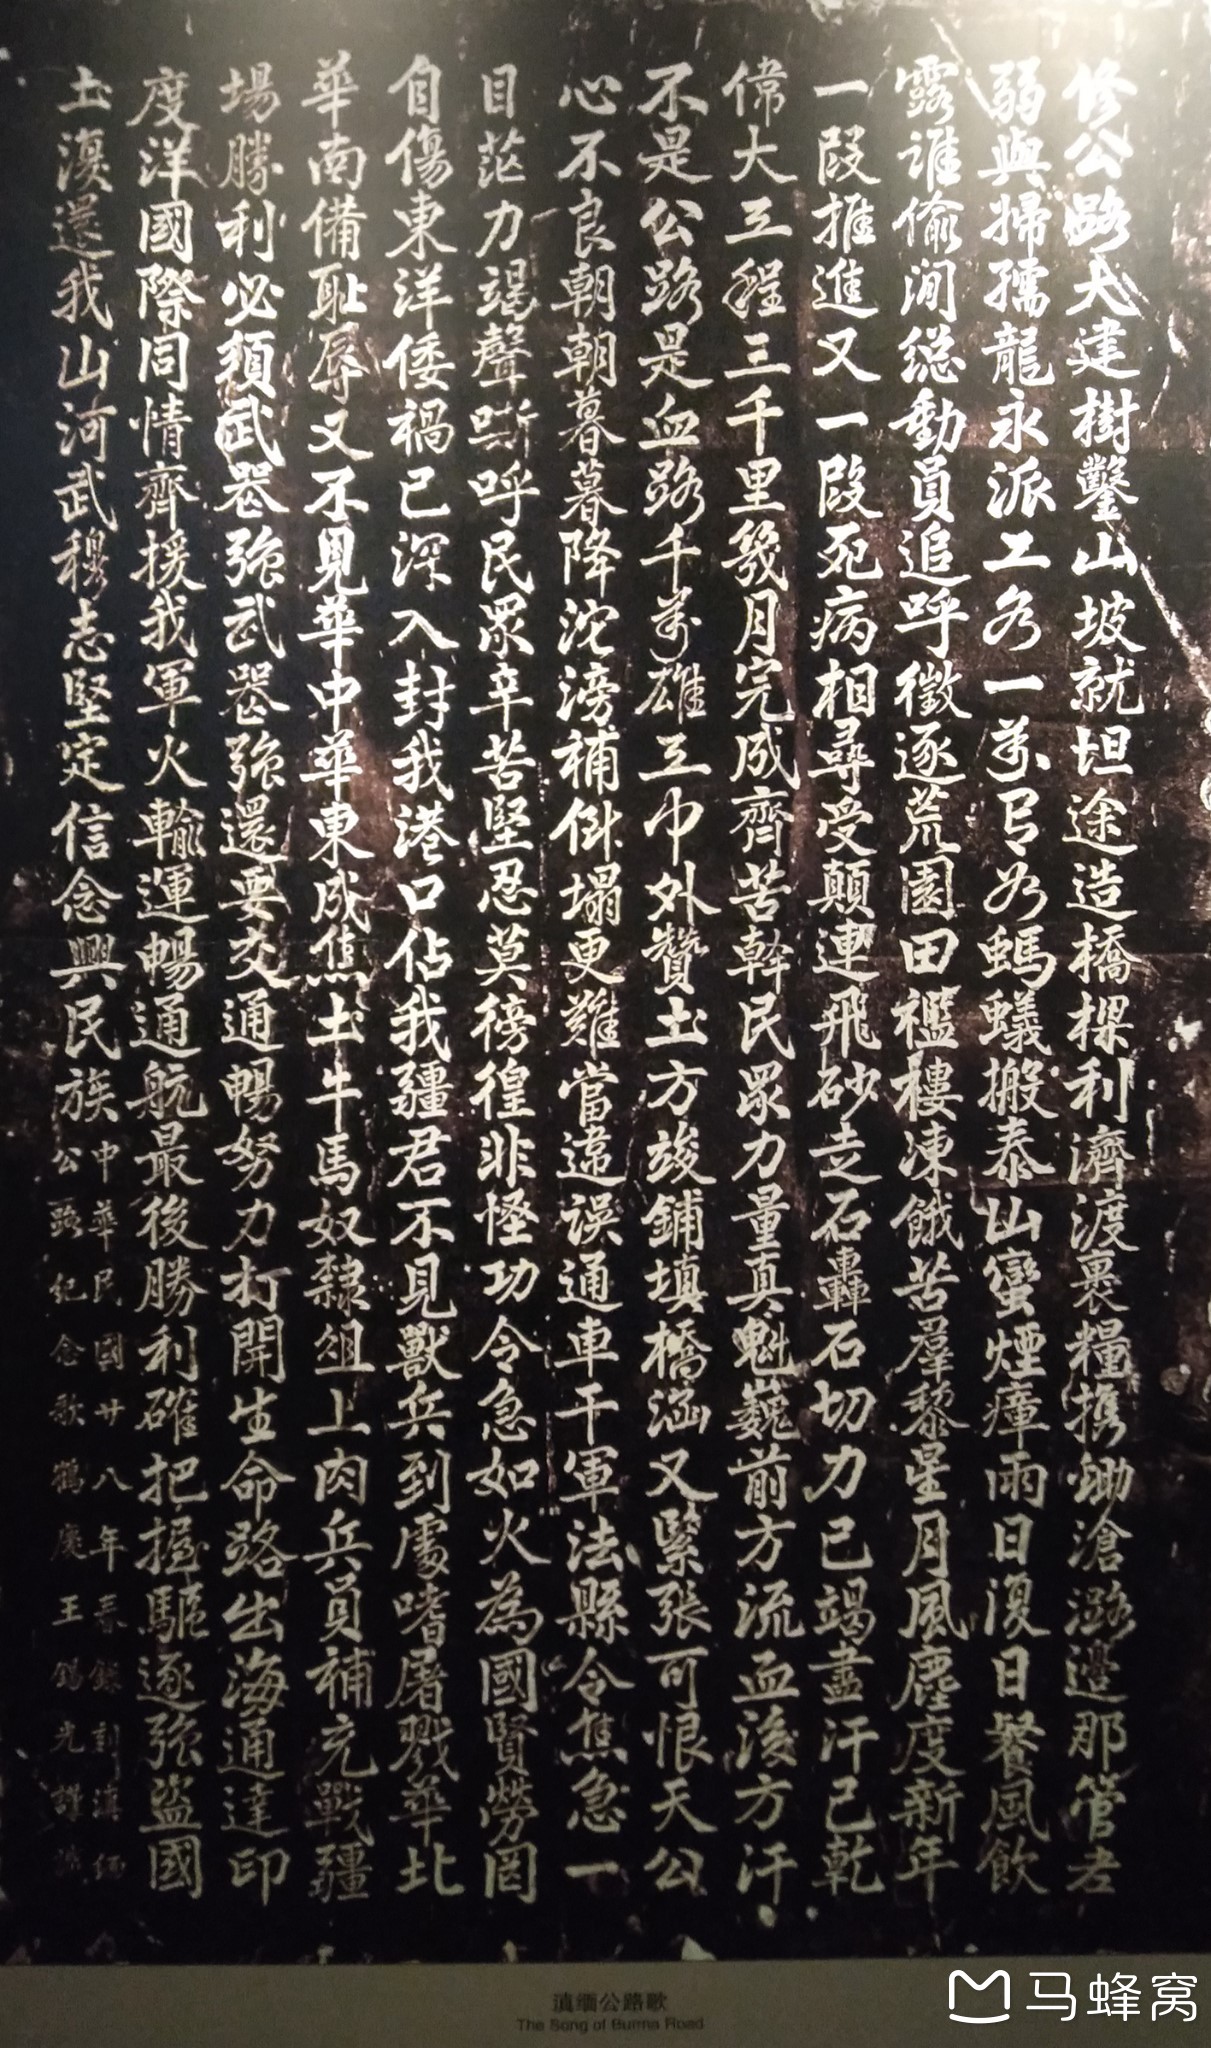 修公路大建樹鑿山坡就坦途造橋樑利濟渡裹糧攜鋤滄潞邊那管老
弱與掃孺龍永派工各一萬弓如螞蟻搬泰山蠻煙瘴雨日復日餐風飲
露誰偷閒總動員追呼徵逐荒園田襤褸凍餓苦羣黎星月風塵度新年
一段推進又一段死病相尋受顛連飛砂走石轟石切力已竭盡汗已乾
偉大工程三千里幾月完成齊苦幹民眾力量真魁巍前方流血後方汗
不是公路是血路千萬雄工巾外贊土方竣鋪填橋涵又緊張可恨天公
心不良朝朝暮暮降沱滂補斜塌更難當違誤通車干軍法縣令焦急一
目茫力竭聲嘶呼民眾辛苦堅忍莫徬徨非怪功令急如火為國賢勞罔
自傷東洋倭禍已深入封我港口佔我疆君不見獸兵到處嗜屠戮華北
華南備恥辱又不見華中華東成焦土牛馬奴隸俎上肉兵員補充戰疆
場勝利必須武器強武器強還要交通暢努力打開生命路出海通達印
度洋國際同情齊援我軍火輸運暢通航最後勝利確把握驅逐強盜國
土復還我山河武穆志堅定信念興民族
中華民國廿八年春鐫刻滇緬
公路紀念歌鶴慶王錫光謹識
滇缅公路歌
The Song of Burma Road
马蜂窝